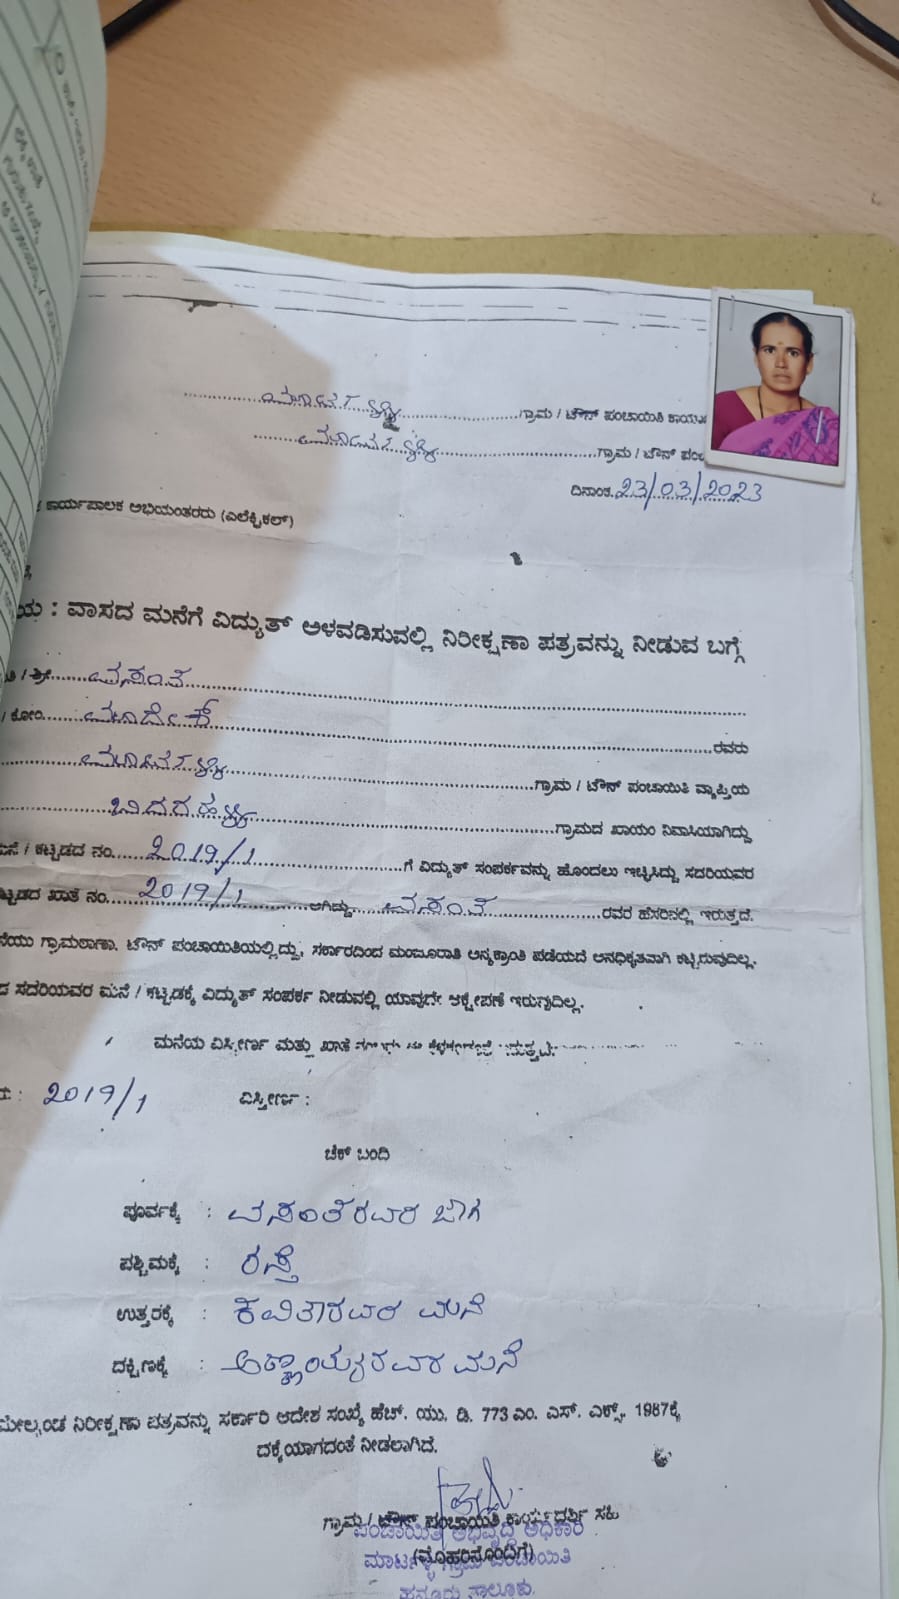 ಗ್ರಾಮ / ಟೌನ್ ಪಂಚಾಯಿತಿ
ಗ್ರಾಮ / ಟೌನ್
ದಿನಾಂಕ 23/03/2023
ಕಾರ್ಯಪಾಲಕ ಅಭಿಯಂತರರು (ಎಲೆಕ್ಟ್ರಿಕಲ್)
: ವಾಸದ ಮನೆಗೆ ವಿದ್ಯುತ್ ಅಳವಡಿಸುವಲ್ಲಿ ನಿರೀಕ್ಷಣಾ ಪತ್ರವನ್ನು ನೀಡುವ ಬಗ್ಗೆ
/ ಶ್ರೀ ವಸಂತ
/ ಕೋಂ ಮಾದೇಶ್ ರವರು
ಗ್ರಾಮ / ಟೌನ್ ಪಂಚಾಯಿತಿ ವ್ಯಾಪ್ತಿಯ
ಗ್ರಾಮದ ಖಾಯಂ ನಿವಾಸಿಯಾಗಿದ್ದು
/ ಕಟ್ಟಡದ ನಂ. 2019/1 ಗೆ ವಿದ್ಯುತ್ ಸಂಪರ್ಕವನ್ನು ಹೊಂದಲು ಇಚ್ಛಿಸಿದ್ದು ಸದರಿಯವರ
ಖಾತೆ ನಂ. 2019/1 ಆಗಿದ್ದು ವಸಂತ ರವರ ಹೆಸರಿನಲ್ಲಿ ಇರುತ್ತದೆ.
ಗ್ರಾಮಠಾಣಾ, ಟೌನ್ ಪಂಚಾಯಿತಿಯಲ್ಲಿದ್ದು, ಸರ್ಕಾರದಿಂದ ಮಂಜೂರಾತಿ ಅನ್ಯಕ್ರಾಂತಿ ಪಡೆಯದೆ ಅನಧಿಕೃತವಾಗಿ ಕಟ್ಟಿರುವುದಿಲ್ಲ.
ಸದರಿಯವರ ಮನೆ / ಕಟ್ಟಡಕ್ಕೆ ವಿದ್ಯುತ್ ಸಂಪರ್ಕ ನೀಡುವಲ್ಲಿ ಯಾವುದೇ ಆಕ್ಷೇಪಣೆ ಇರುವುದಿಲ್ಲ.
ಮನೆಯ ವಿಸ್ತೀರ್ಣ ಮತ್ತು ಖಾತೆ
: 2019/1 ವಿಸ್ತೀರ್ಣ :
ಚೆಕ್ ಬಂದಿ
ಪೂರ್ವಕ್ಕೆ : ವಸಂತರವರ ಜಾಗ
ಪಶ್ಚಿಮಕ್ಕೆ : ರಸ್ತೆ
ಉತ್ತರಕ್ಕೆ : ಕವಿತಾರವರ ಮನೆ
ದಕ್ಷಿಣಕ್ಕೆ : ಮನೆ
ಮೇಲ್ಕಂಡ ನಿರೀಕ್ಷಣಾ ಪತ್ರವನ್ನು ಸರ್ಕಾರಿ ಆದೇಶ ಸಂಖ್ಯೆ ಹೆಚ್. ಯು. ಡಿ. 773 ಎಂ. ಎಸ್. ಎಕ್ಸ್. 1987ಕ್ಕೆ
ದಕ್ಕೆಯಾಗದಂತೆ ನೀಡಲಾಗಿದೆ.
ಗ್ರಾಮ / ಟೌನ್ ಪಂಚಾಯಿತಿ ಕಾರ್ಯದರ್ಶಿ ಸಹಿ
ಪಂಚಾಯಿತಿ ಅಭಿವೃದ್ಧಿ ಅಧಿಕಾರಿ
(ಮೊಹರಿನೊಂದಿಗೆ)
ಗ್ರಾಮ ಪಂಚಾಯಿತಿ
ಹನೂರು ತಾಲ್ಲೂಕು.